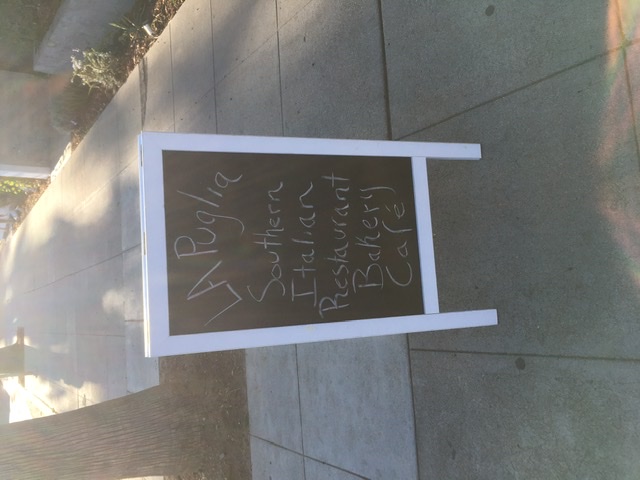 LA Puglia
Southern
Italian
Restaurant
Bakery
Café